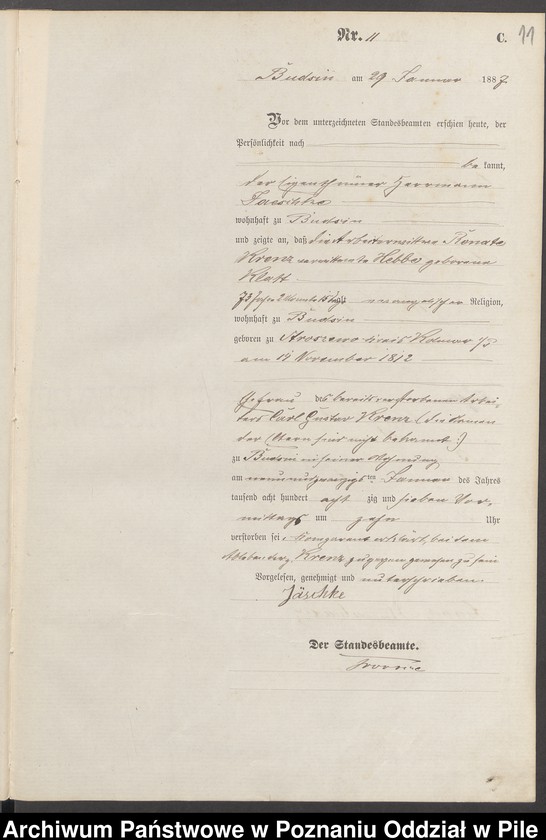 Nr. 11
C. 11
Budsin am 29 Januar 1887
Vor dem unterzeichneten Standesbeamten erschien heute, der
Persönlichkeit nach
be kannt,
der Eigenthümer Herrmann
Jaeschke
wohnhaft zu Budsin
und zeigte an, daß die Arbeiterwittwe Renate
Krenz verwittwete Hebbe geborene
Klatt
73 Jahre 2 Monate 15 Tage evangelischer Religion,
wohnhaft zu Budsin
geboren zu Strosewo Kreis Kolmar i/P
am 14 November 1812
Ehefrau des bereits verstorbenen Arbei-
ters Carl Gustav Krenz (die Namen
der Eltern sind nicht bekannt)
zu Budsin in seiner Wohnung
am neunundzwanzigsten Januar des Jahres
tausend acht hundert acht zig und sieben Vor-
mittags um zehn Uhr
verstorben sei, erklärt, bei dem
Ableben der Krenz zugegen gewesen zu sein
Vorgelesen, genehmigt und unterschrieben.
Jäschke
Der Standesbeamte.
Archiwum Państwowe w Poznaniu Oddział w Pile